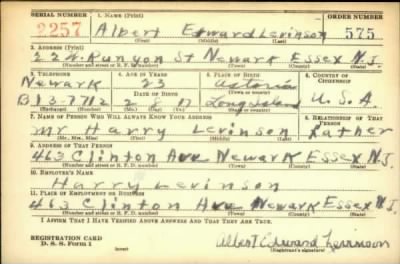 SERIAL NUMBER 1. NAME (Print) ORDER NUMBER
2257 Albert Edward Levinson 575
(First) (Middle) (Last)
2. ADDRESS (Print)
22 N. Runyon St Newark Essex N.J.
(Number and street or R. F. D. number) (Town) (County) (State)
3. TELEPHONE 4. AGE IN YEARS 5. PLACE OF BIRTH 6. COUNTRY OF CITIZENSHIP
Newark 23 Astoria
DATE OF BIRTH (Town or county)
B13 712 2 8 17 Long Island U.S.A.
(Exchange) (Number) (Mo.) (Day) (Yr.) (State or country)
7. NAME OF PERSON WHO WILL ALWAYS KNOW YOUR ADDRESS 8. RELATIONSHIP OF THAT PERSON
Mr Harry Levinson Father
(Mr., Mrs., Miss) (First) (Middle) (Last)
9. ADDRESS OF THAT PERSON
463 Clinton Ave Newark Essex N.J.
(Number and street or R. F. D. number) (Town) (County) (State)
10. EMPLOYER'S NAME
Harry Levinson
11. PLACE OF EMPLOYMENT OR BUSINESS
463 Clinton Ave Newark Essex N.J.
(Number and street or R. F. D. number) (Town) (County) (State)
I AFFIRM THAT I HAVE VERIFIED ABOVE ANSWERS AND THAT THEY ARE TRUE.
REGISTRATION CARD
D. S. S. Form 1 (over) Albert Edward Levinson
(Registrant's signature)